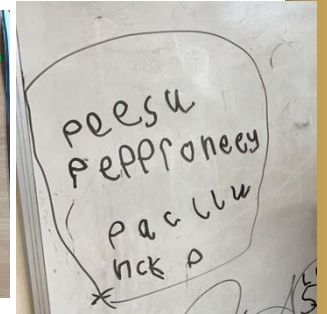 peesu
pepproneey
paclluw
nck p